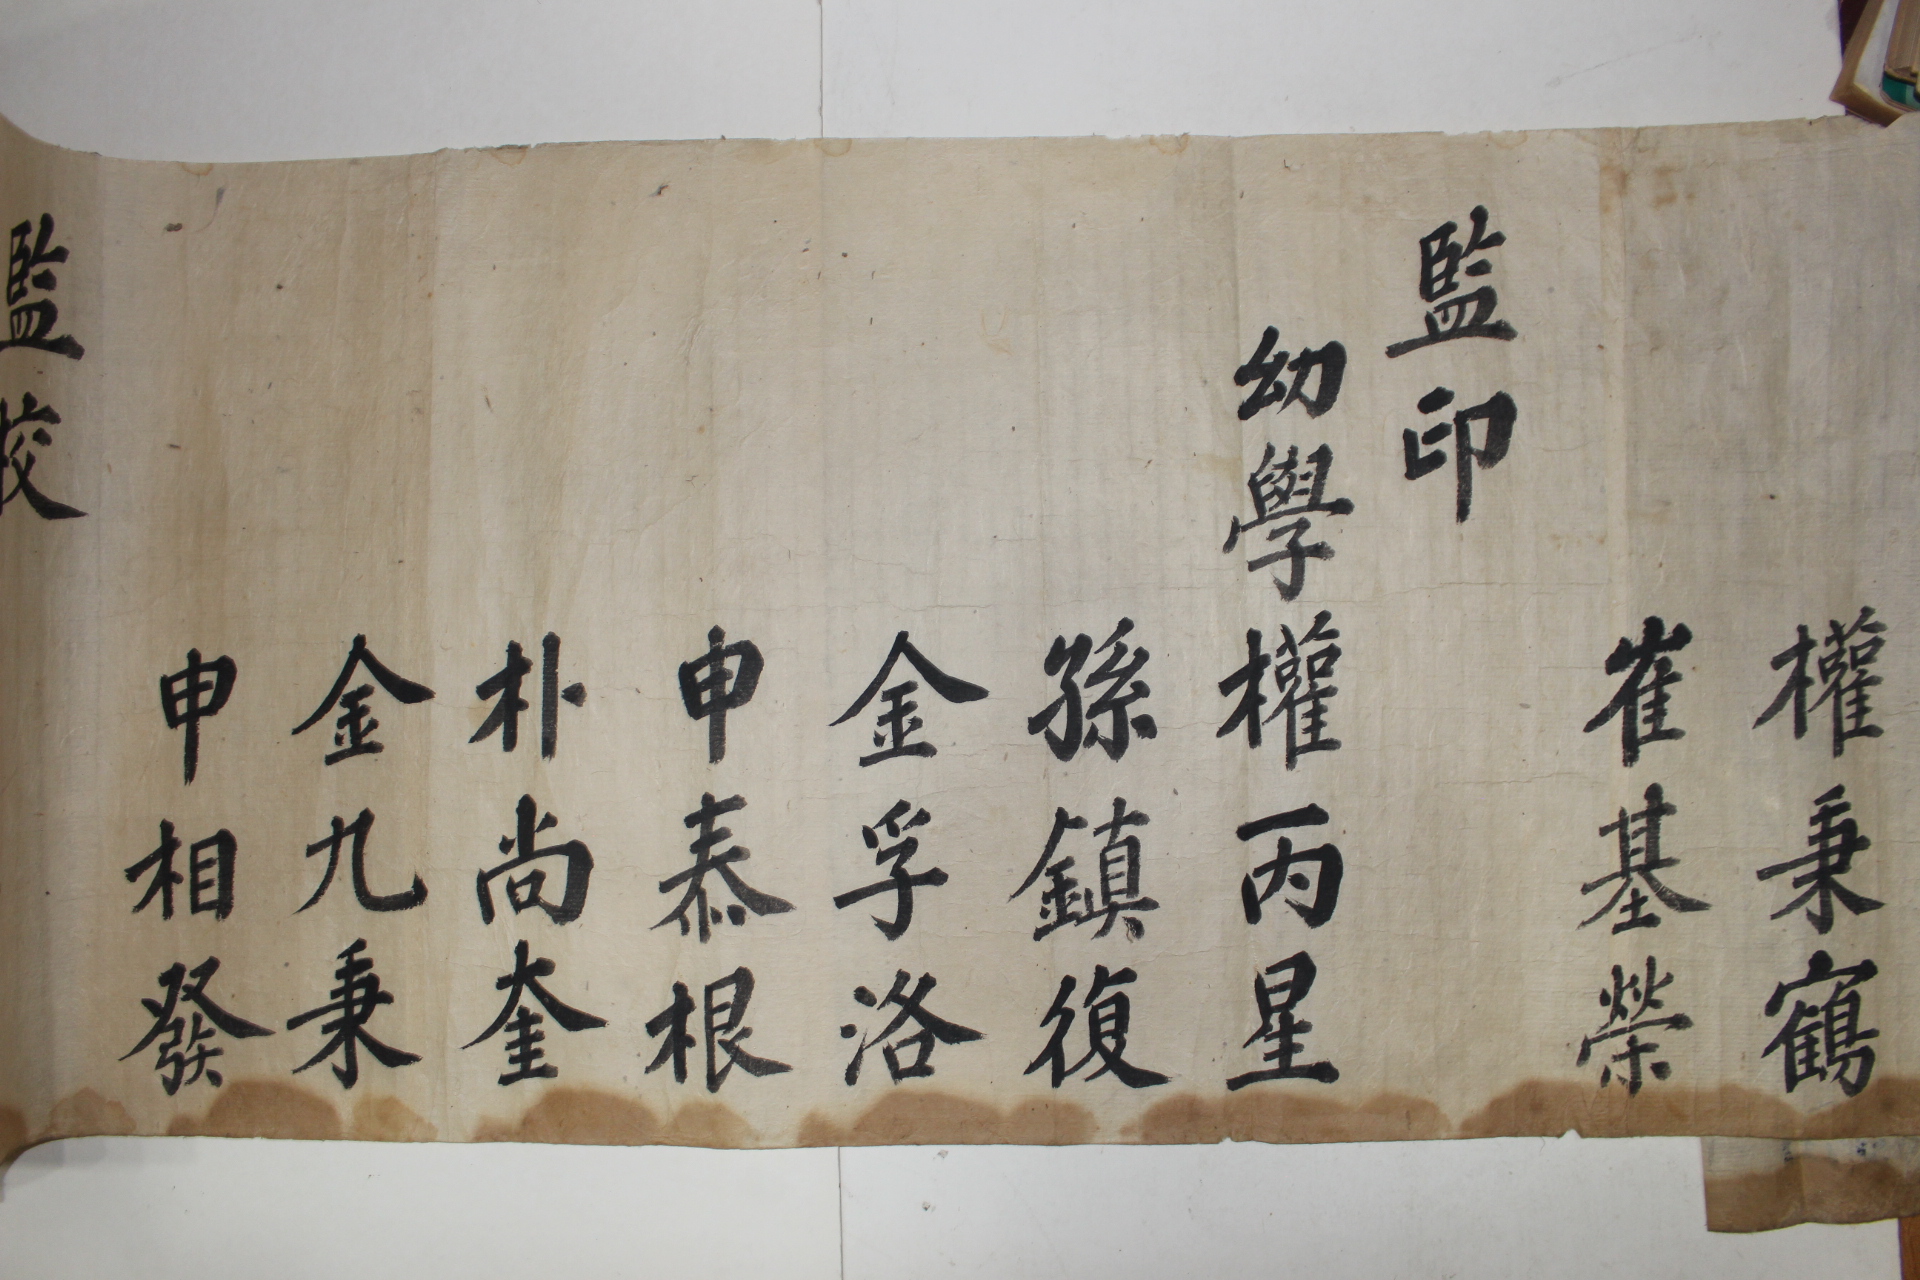 權秉寉
崔基榮
監印
幼學權丙星
孫鎮復
金孚洛
申泰根
朴尚奎
金九秉
申相發
監校